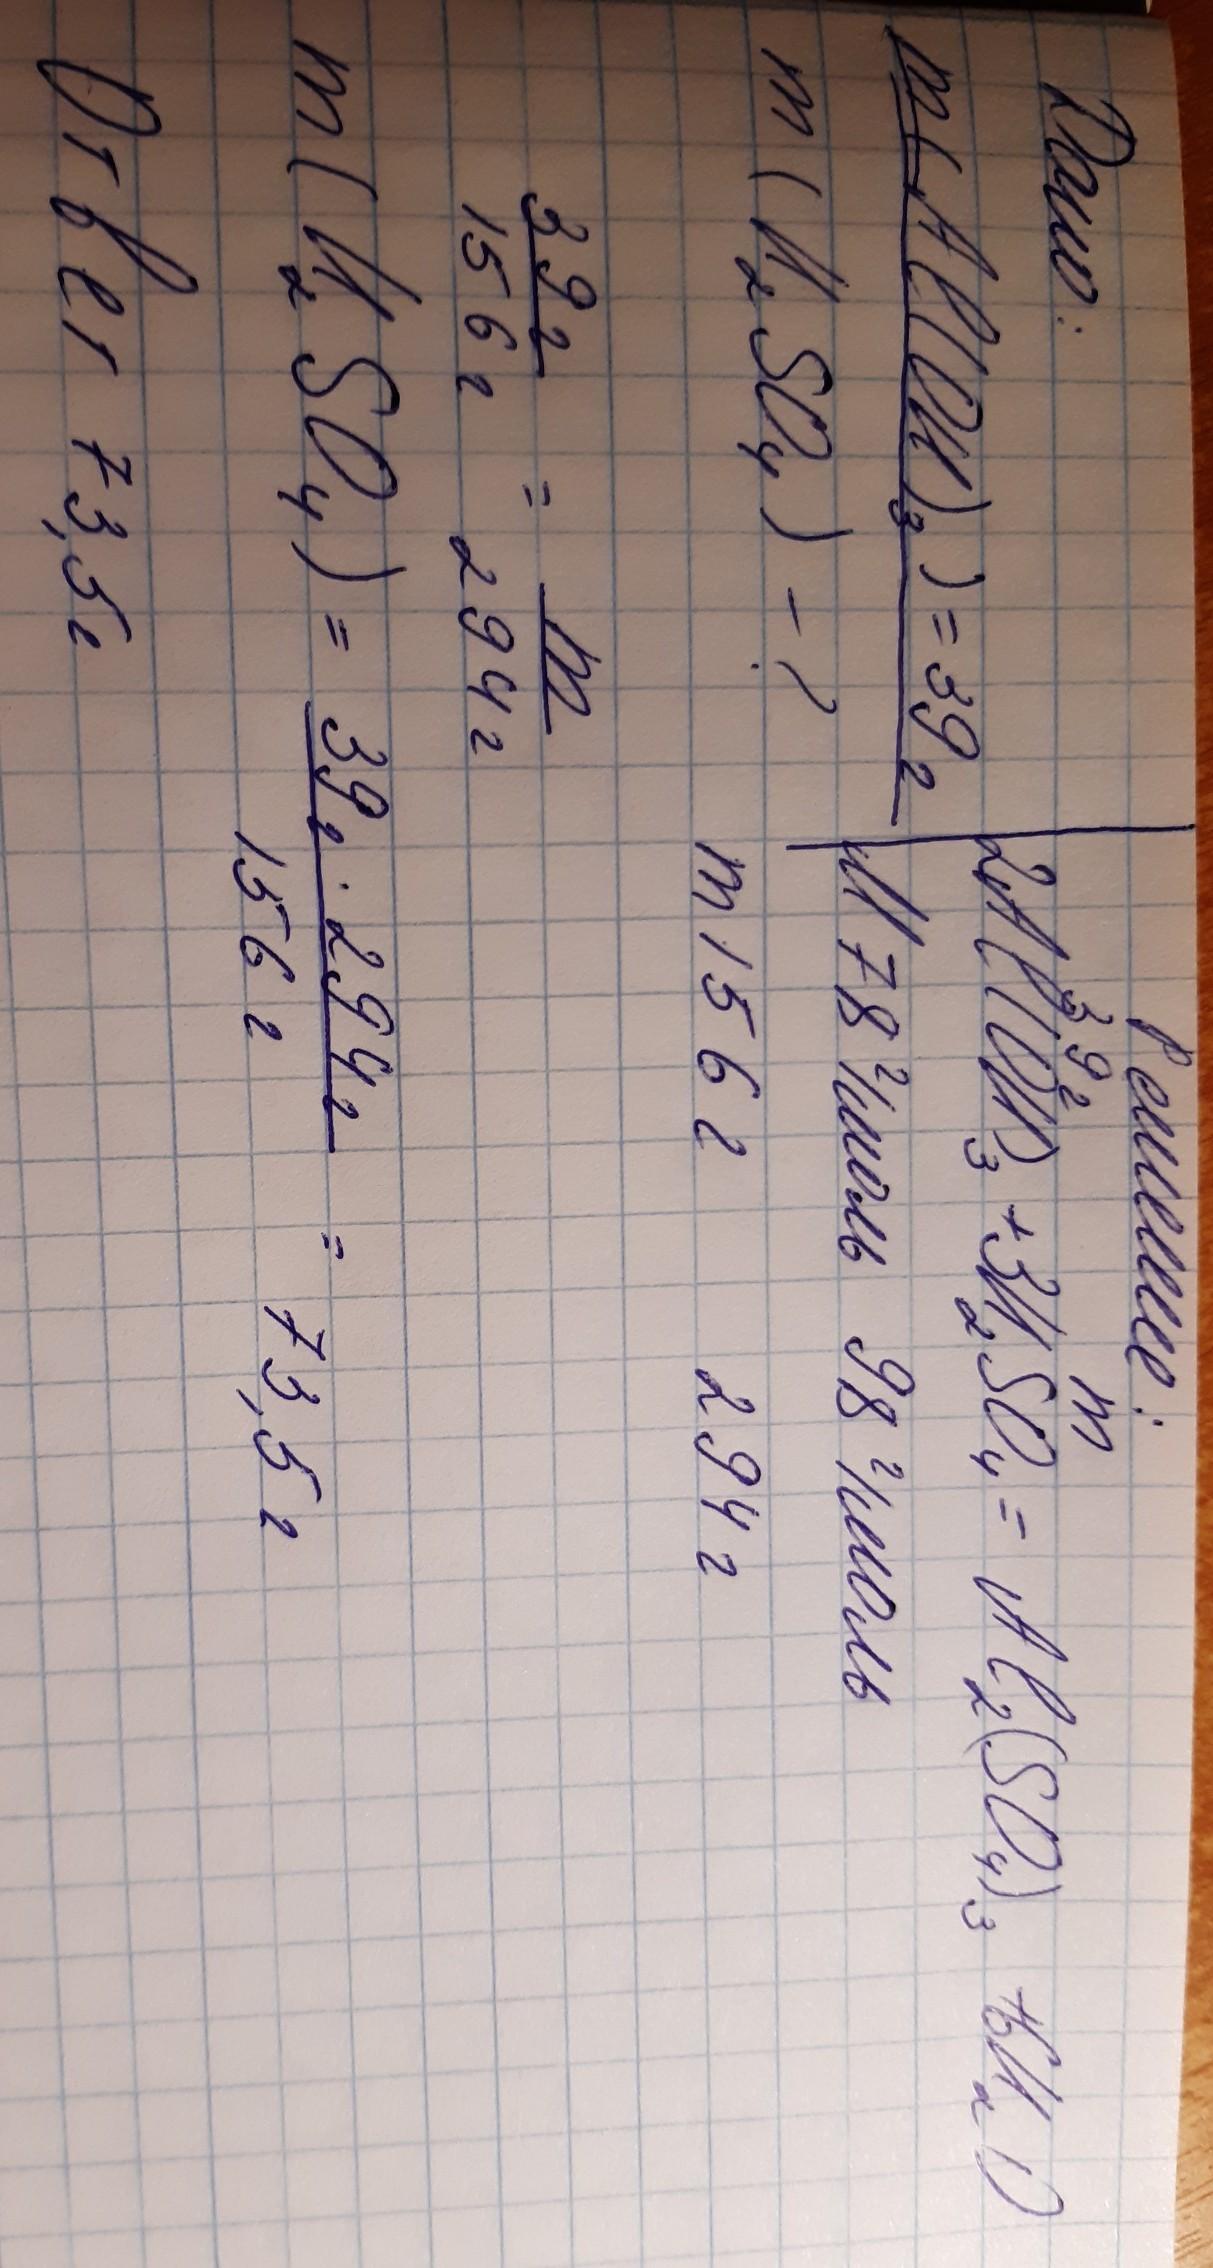 Дано:
m(Al(OH)₃)=39г
m(H₂SO₄) - ?
Решение:
39г m
2Al(OH)₃ +3H₂SO₄ = Al₂(SO₄)₃ +6H₂O
M 78 г/моль 98 г/моль
m 156 г 294 г
39г/156г = m/294г
m(H₂SO₄) = 39г · 294г/156г = 73,5г
Ответ 73,5г